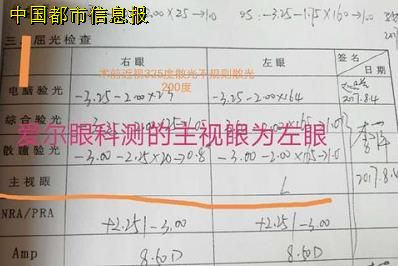 中国都市信息报
三、屈光检查
右眼 左眼 签名 日期
术前近视325度散光不规则散光
200度
电脑验光 -3.25-2.00×23 -3.25-2.00×164 2017.8.4
综合验光
爱尔眼科测的主视眼为左眼
散瞳验光 -3.00-2.25×20→0.8 -3.00-2.00×175→1.0
主视眼 L 2017.8.4
NRA/PRA +2.25/-3.00 +2.25/-3.00
Amp 8.50D 8.50D